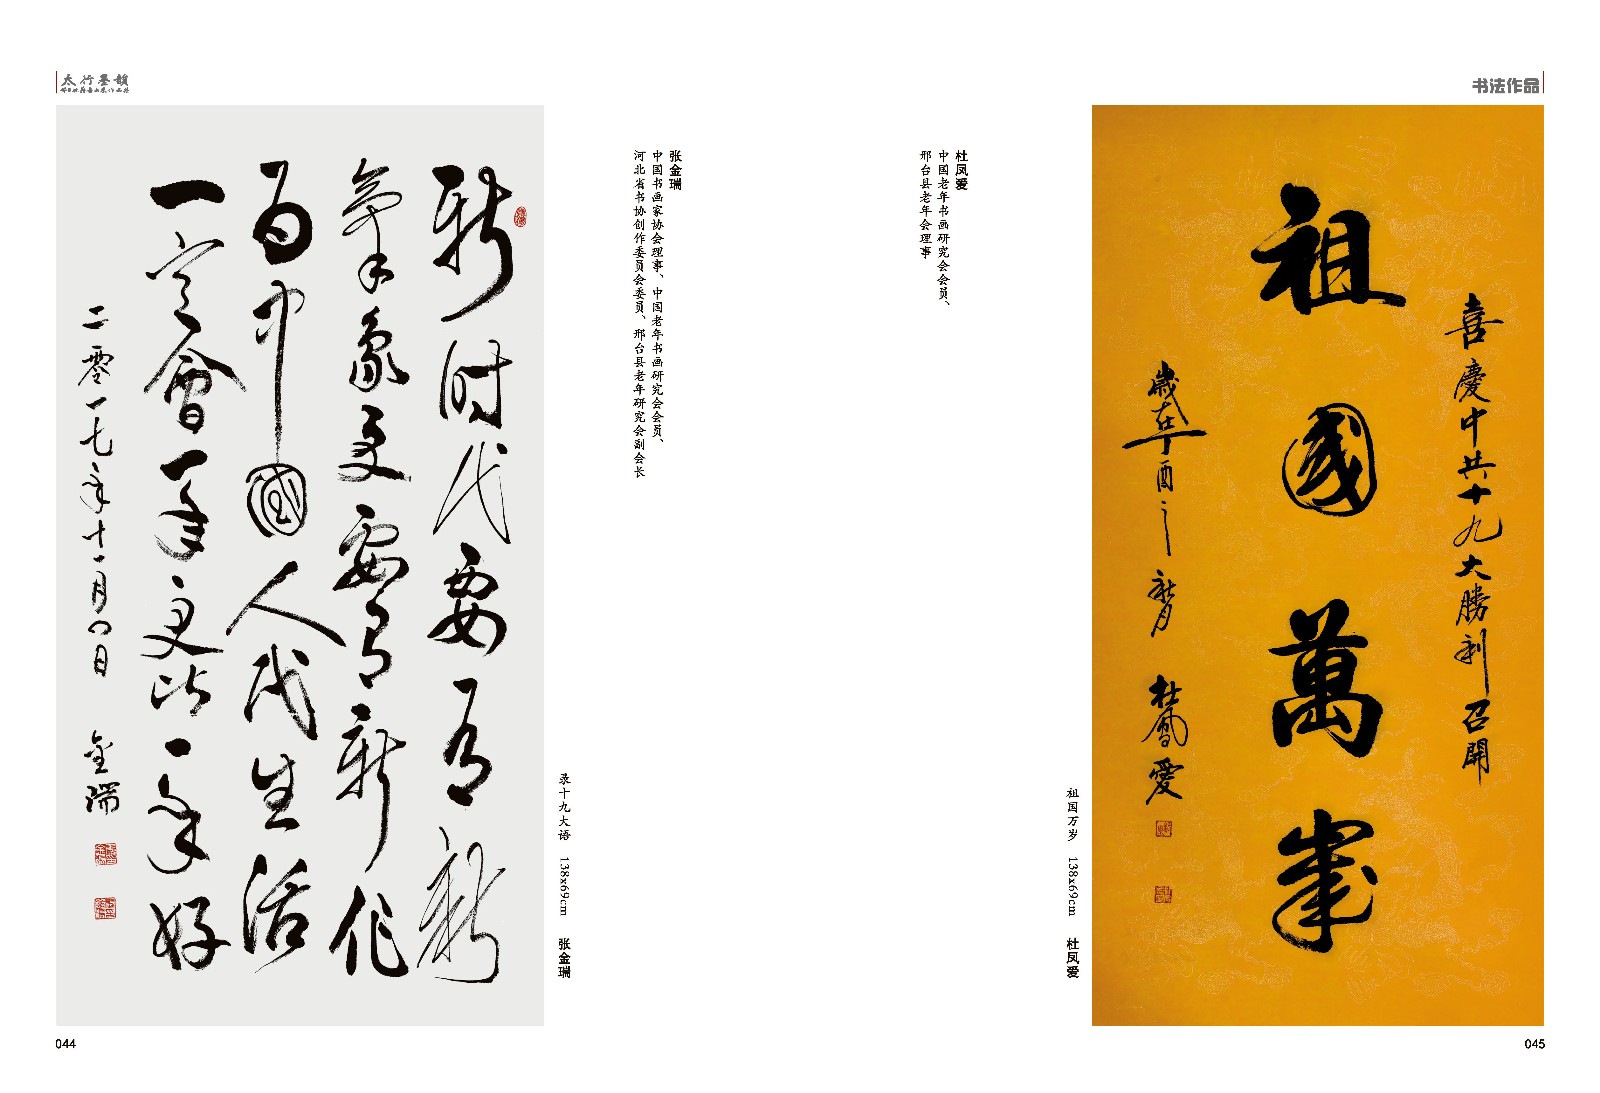 太行墨韻
新时代要有新
氣象更要有新作
為中國人民生活
一定會一年更比一年好
二零一七年十一月八日 金瑞
录十九大语 138x69cm 张金瑞
张金瑞
中国书画家协会理事、中国老年书画研究会会员、
河北省书协创作委员会委员、邢台县老年研究会副会长
044
书法作品
杜凤爱
中国老年书画研究会会员、
邢台县老年会理事
喜慶中共十九大勝利召開
祖國萬歲
歲在丁酉之秋月 杜鳳愛
祖国万岁 138x69cm 杜凤爱
045